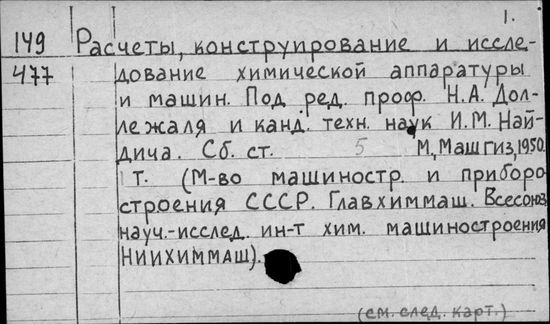 1.
149 Расчеты, конструирование и иссле-
477 дование химической аппаратуры
и машин. Под ред. проф. Н.А. Дол-
лежаля и канд. техн. наук И.М. Най-
дича. Сб. ст. 5 М, Машгиз, 1950.
1 т. (М-во машиностр. и приборо
строения СССР. Главхиммаш. Всесоюз.
науч.-исслед. ин-т хим. машиностроения
НИИХИММАШ).
(см. след. карт.)